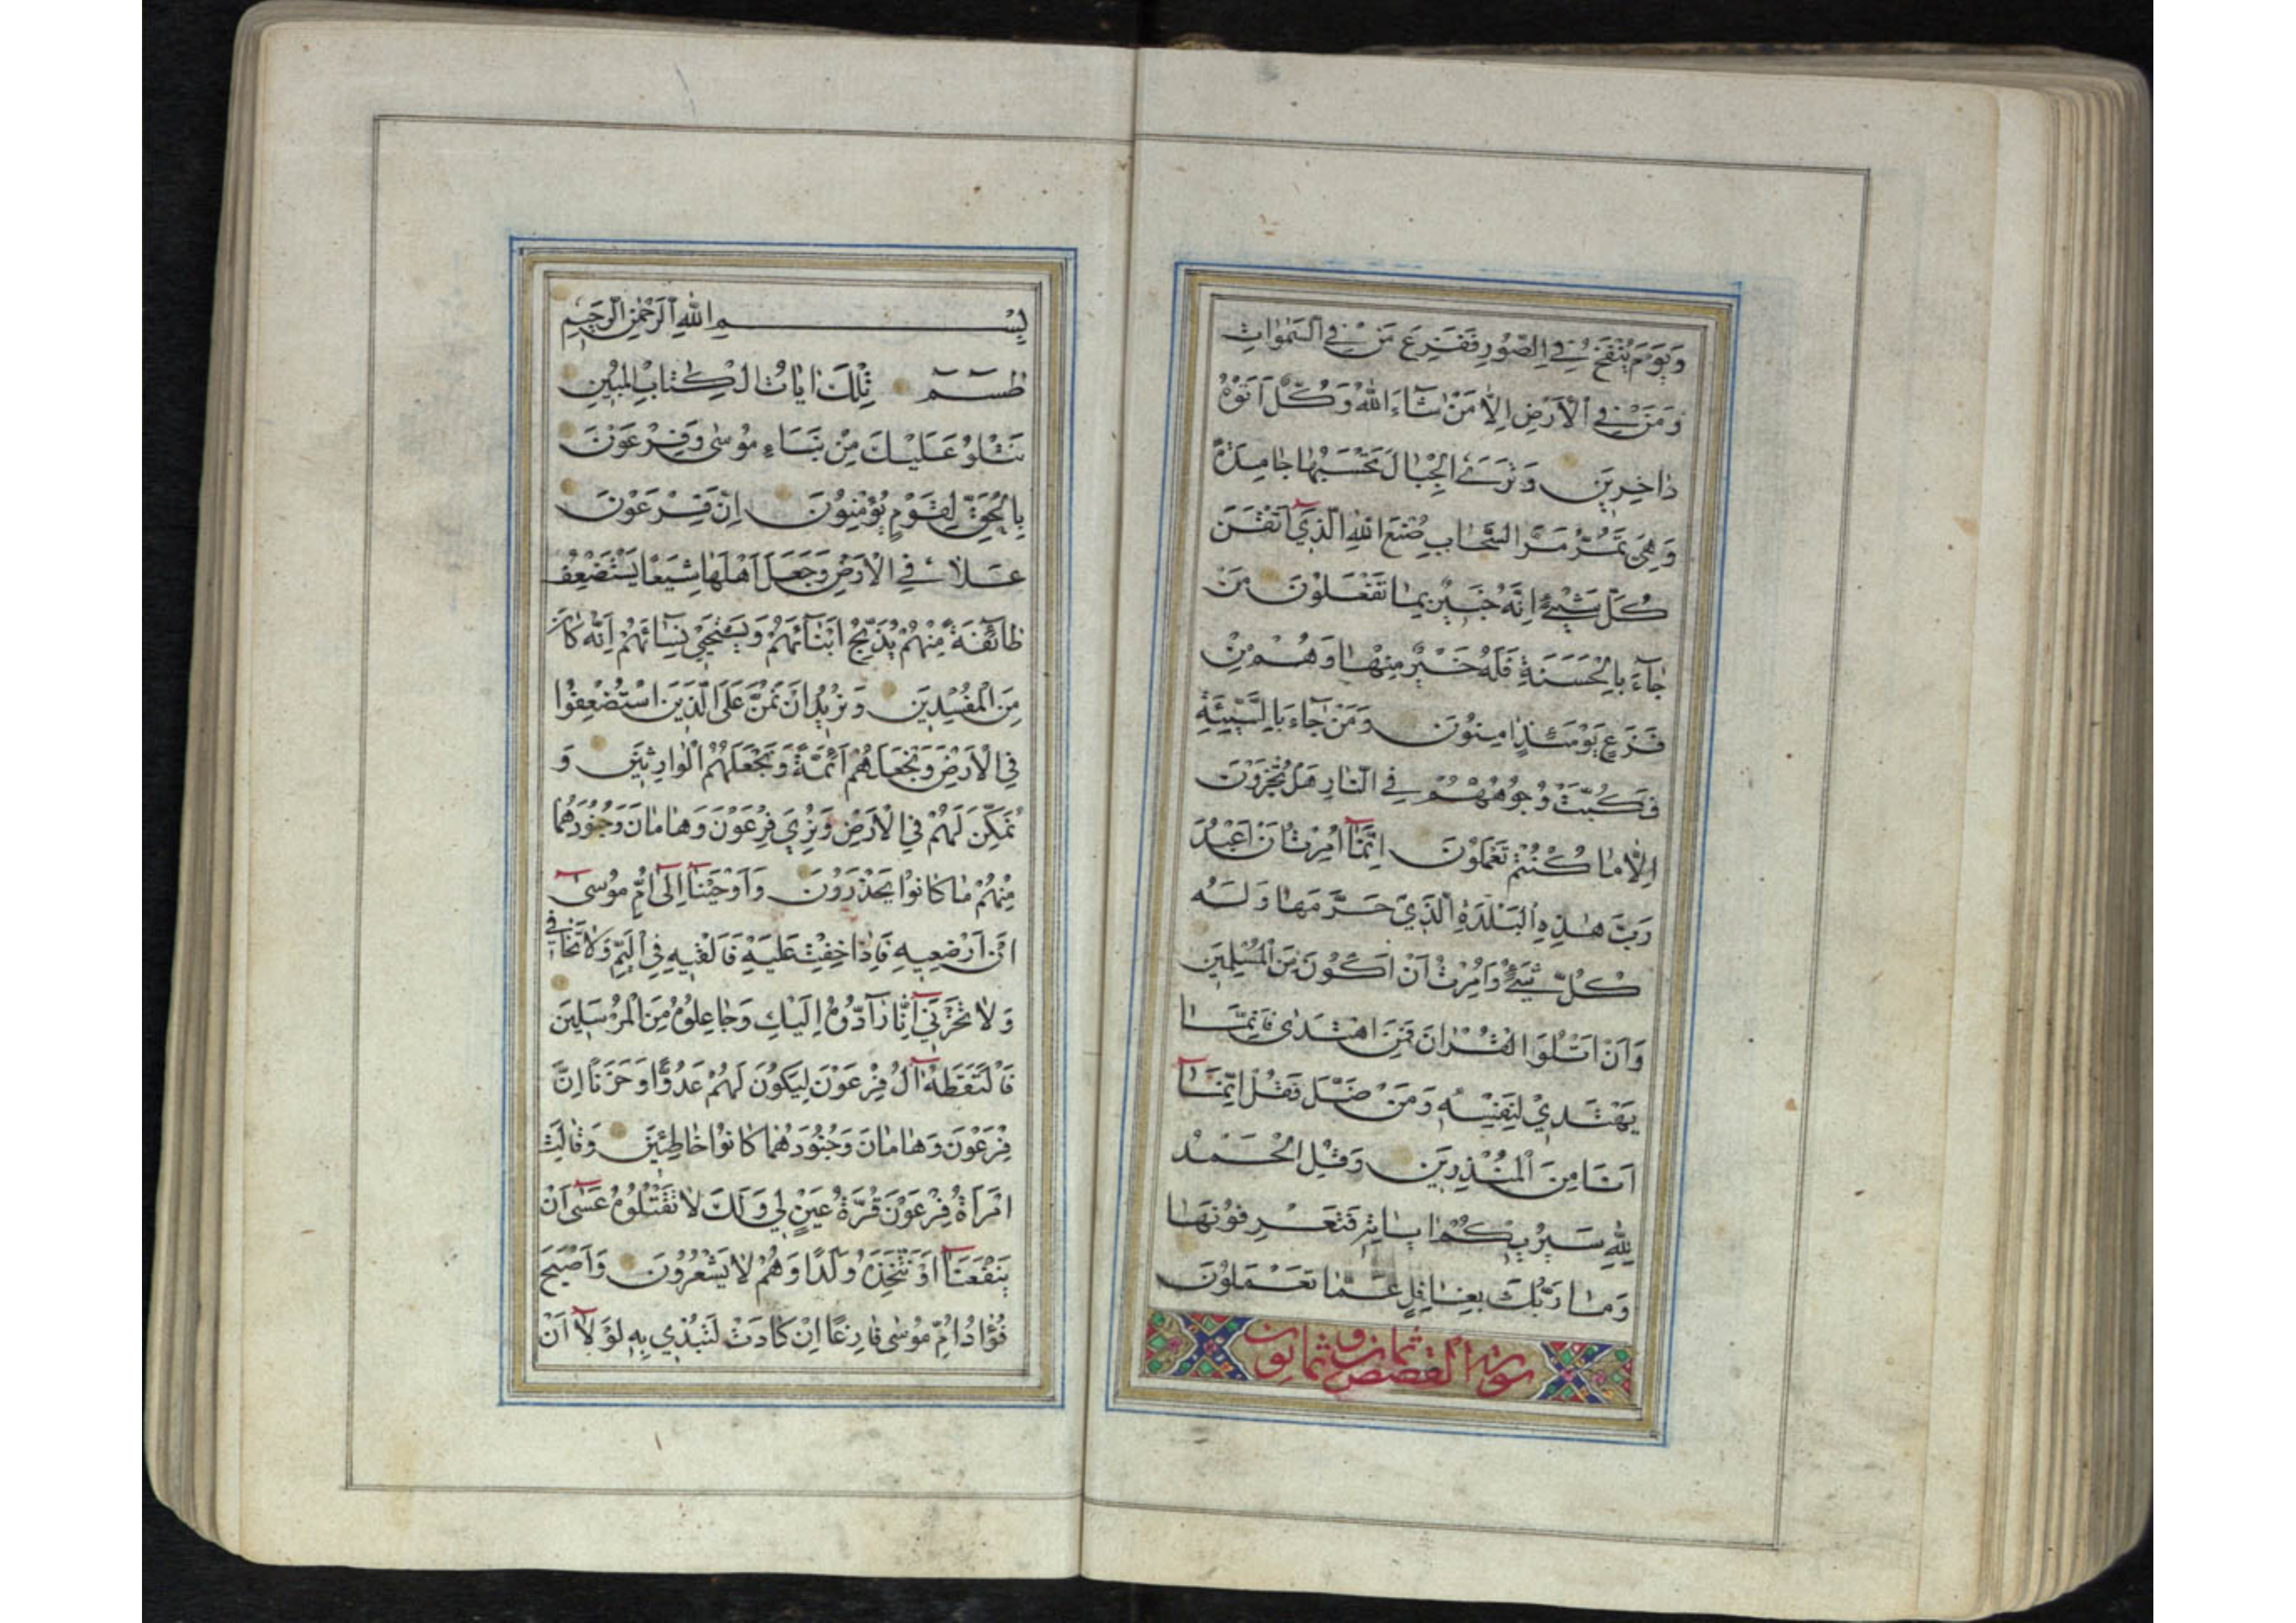 وَيَوْمَ يُنْفَخُ فِي الصُّورِ فَفَزِعَ مَنْ فِي السَّمٰوَاتِ
وَمَنْ فِي الْاَرْضِ اِلَّا مَنْ شَآءَ اللّٰهُ وَكُلٌّ اَتَوْهُ
دَاخِرِينَ وَتَرَى الْجِبَالَ تَحْسَبُهَا جَامِدَةً
وَهِيَ تَمُرُّ مَرَّ السَّحَابِ صُنْعَ اللّٰهِ الَّذِيٓ اَتْقَنَ
كُلَّ شَيْءٍ اِنَّهُ خَبِيرٌ بِمَا تَفْعَلُونَ مَنْ
جَآءَ بِالْحَسَنَةِ فَلَهُ خَيْرٌ مِنْهَا وَهُمْ مِنْ
فَزَعٍ يَوْمَئِذٍ اٰمِنُونَ وَمَنْ جَآءَ بِالسَّيِّئَةِ
فَكُبَّتْ وُجُوهُهُمْ فِي النَّارِ هَلْ تُجْزَوْنَ
اِلَّا مَا كُنْتُمْ تَعْمَلُونَ اِنَّمَآ اُمِرْتُ اَنْ اَعْبُدَ
رَبَّ هٰذِهِ الْبَلْدَةِ الَّذِي حَرَّمَهَا وَلَهُ
كُلُّ شَيْءٍ وَاُمِرْتُ اَنْ اَكُونَ مِنَ الْمُسْلِمِينَ
وَاَنْ اَتْلُوَا الْقُرْاٰنَ فَمَنِ اهْتَدٰى فَاِنَّمَا
يَهْتَدِي لِنَفْسِهِ وَمَنْ ضَلَّ فَقُلْ اِنَّمَآ
اَنَا مِنَ الْمُنْذِرِينَ وَقُلِ الْحَمْدُ
لِلّٰهِ سَيُرِيكُمْ اٰيَاتِهِ فَتَعْرِفُونَهَا
وَمَا رَبُّكَ بِغَافِلٍ عَمَّا تَعْمَلُونَ
سورة القصص ثمان و ثمانون
بِسْمِ اللّٰهِ الرَّحْمٰنِ الرَّحِيمِ
طٰسٓمٓ تِلْكَ اٰيَاتُ الْكِتَابِ الْمُبِينِ
نَتْلُو عَلَيْكَ مِنْ نَبَاءِ مُوسٰى وَفِرْعَوْنَ
بِالْحَقِّ لِقَوْمٍ يُؤْمِنُونَ اِنَّ فِرْعَوْنَ
عَلَا فِي الْاَرْضِ وَجَعَلَ اَهْلَهَا شِيَعًا يَسْتَضْعِفُ
طَآئِفَةً مِنْهُمْ يُذَبِّحُ اَبْنَآئَهُمْ وَيَسْتَحْيِي نِسَآئَهُمْ اِنَّهُ كَانَ
مِنَ الْمُفْسِدِينَ وَنُرِيدُ اَنْ نَمُنَّ عَلَى الَّذِينَ اسْتُضْعِفُوا
فِي الْاَرْضِ وَنَجْعَلَهُمْ اَئِمَّةً وَنَجْعَلَهُمُ الْوَارِثِينَ وَ
نُمَكِّنَ لَهُمْ فِي الْاَرْضِ وَنُرِيَ فِرْعَوْنَ وَهَامَانَ وَجُنُودَهُمَا
مِنْهُمْ مَا كَانُوا يَحْذَرُونَ وَاَوْحَيْنَآ اِلٰٓى اُمِّ مُوسٰىٓ
اَنْ اَرْضِعِيهِ فَاِذَا خِفْتِ عَلَيْهِ فَاَلْقِيهِ فِي الْيَمِّ وَلَا تَخَافِي
وَلَا تَحْزَنِيٓ اِنَّا رَآدُّوهُ اِلَيْكِ وَجَاعِلُوهُ مِنَ الْمُرْسَلِينَ
فَالْتَقَطَهُٓ اٰلُ فِرْعَوْنَ لِيَكُونَ لَهُمْ عَدُوًّا وَحَزَنًا اِنَّ
فِرْعَوْنَ وَهَامَانَ وَجُنُودَهُمَا كَانُوا خَاطِئِينَ وَقَالَتِ
امْرَاَةُ فِرْعَوْنَ قُرَّةُ عَيْنٍ لِي وَلَكَ لَا تَقْتُلُوهُ عَسٰىٓ اَنْ
يَنْفَعَنَآ اَوْ نَتَّخِذَهُ وَلَدًا وَهُمْ لَا يَشْعُرُونَ وَاَصْبَحَ
فُؤَادُ اُمِّ مُوسٰى فَارِغًا اِنْ كَادَتْ لَتُبْدِي بِهِ لَوْلَآ اَنْ